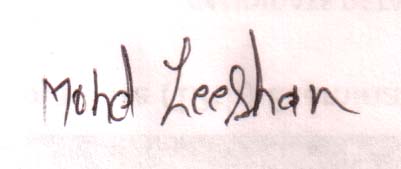 Mohd Zeeshan